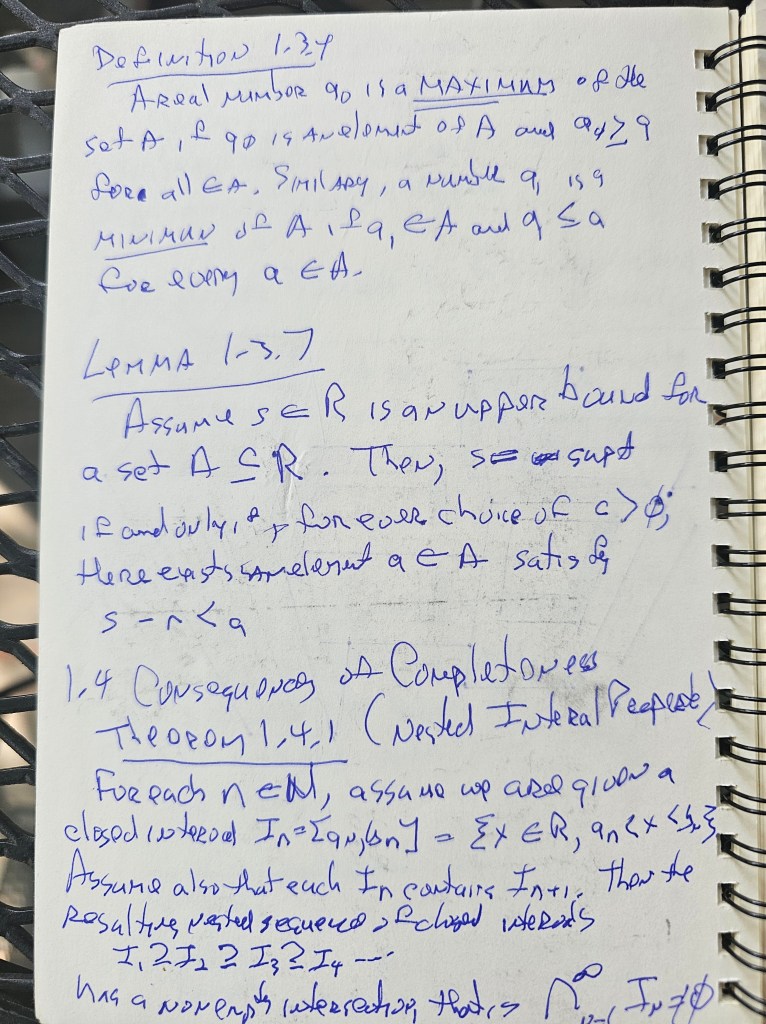 Definition 1.3.4
A real number a₀ is a MAXIMUM of the
set A if a₀ is an element of A and a₀ ≥ a
for all ∈ A. Similary, a number a, is a
MINIMUN of A if a, ∈ A and a ≤ a
for every a ∈ A.
Lemma 1.3.7
Assume s ∈ R is an upper bound for
a set A ⊆ R. Then, s = supA
if and only if, for ever choice of ε > ϕ,
there exists an element a ∈ A satisfy
s - < a
1.4 Consequences of Completeness
Theorem 1.4.1 (Nested Interal Property)
For each n ∈ N, assume we are given a
closed interval Iₙ = [aₙ, bₙ] = {x ∈ R, aₙ < x < bₙ}
Assume also that each Iₙ contains Iₙ₊₁. Then the
Resulting nested sequence of closed intervals
I₁ ⊇ I₂ ⊇ I₃ ⊇ I₄ ---
has a nonempty intersection, that is ⋂ₙ₌₁^∞ Iₙ ≠ ϕ